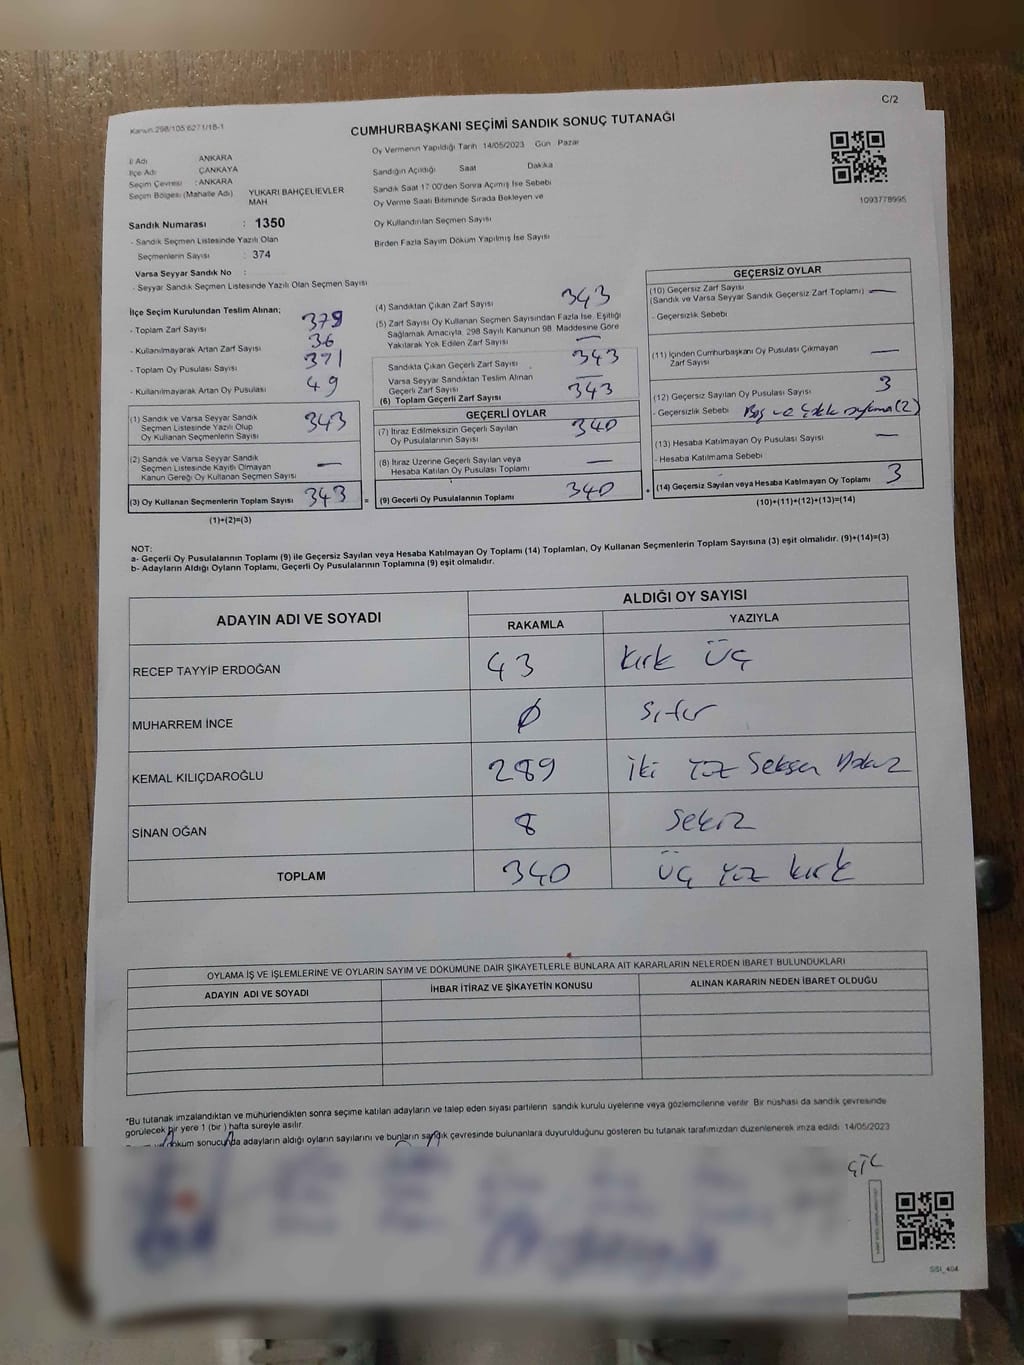 C/2
Kanun:298/105;6271/18-1
CUMHURBAŞKANI SEÇİMİ SANDIK SONUÇ TUTANAĞI
İl Adı ANKARA
İlçe Adı ÇANKAYA
Seçim Çevresi : ANKARA
Seçim Bölgesi (Mahalle Adı) YUKARI BAHÇELİEVLER MAH
Sandık Numarası : 1350
- Sandık Seçmen Listesinde Yazılı Olan
Seçmenlerin Sayısı : 374
Varsa Seyyar Sandık No :
- Seyyar Sandık Seçmen Listesinde Yazılı Olan Seçmen Sayısı
Oy Vermenin Yapıldığı Tarih 14/05/2023 Gün Pazar
Sandığın Açıldığı Saat Dakika
Sandık Saat 17:00'den Sonra Açımış İse Sebebi
Oy Verme Saati Bitiminde Sırada Bekleyen ve
Oy Kullandırılan Seçmen Sayısı
Birden Fazla Sayım Döküm Yapılmış İse Sayısı
1093778995
İlçe Seçim Kurulundan Teslim Alınan;
- Toplam Zarf Sayısı 379
- Kullanılmayarak Artan Zarf Sayısı 36
- Toplam Oy Pusulası Sayısı 371
- Kullanılmayarak Artan Oy Pusulası 49
(1) Sandık ve Varsa Seyyar Sandık
Seçmen Listesinde Yazılı Olup
Oy Kullanan Seçmenlerin Sayısı 343
(2) Sandık ve Varsa Seyyar Sandık
Seçmen Listesinde Kayıtlı Olmayan
Kanun Gereği Oy Kullanan Seçmen Sayısı —
(3) Oy Kullanan Seçmenlerin Toplam Sayısı 343 =
(1)+(2)=(3)
(4) Sandıktan Çıkan Zarf Sayısı 343
(5) Zarf Sayısı Oy Kullanan Seçmen Sayısından Fazla İse, Eşitliği
Sağlamak Amacıyla, 298 Sayılı Kanunun 98. Maddesine Göre
Yakılarak Yok Edilen Zarf Sayısı —
Sandıkta Çıkan Geçerli Zarf Sayısı 343
Varsa Seyyar Sandıktan Teslim Alınan
Geçerli Zarf Sayısı —
(6) Toplam Geçerli Zarf Sayısı 343
GEÇERLİ OYLAR
(7) İtiraz Edilmeksizin Geçerli Sayılan
Oy Pusulalarının Sayısı 340
(8) İtiraz Üzerine Geçerli Sayılan veya
Hesaba Katılan Oy Pusulası Toplamı —
(9) Geçerli Oy Pusulalarının Toplamı 340 +
GEÇERSİZ OYLAR
(10) Geçersiz Zarf Sayısı —
(Sandık ve Varsa Seyyar Sandık Geçersiz Zarf Toplamı)
- Geçersizlik Sebebi
(11) İçinden Cumhurbaşkanı Oy Pusulası Çıkmayan
Zarf Sayısı —
(12) Geçersiz Sayılan Oy Pusulası Sayısı 3
- Geçersizlik Sebebi Boş ve (2)
(13) Hesaba Katılmayan Oy Pusulası Sayısı —
- Hesaba Katılmama Sebebi
(14) Geçersiz Sayılan veya Hesaba Katılmayan Oy Toplamı 3
(10)+(11)+(12)+(13)=(14)
NOT:
a- Geçerli Oy Pusulalarının Toplamı (9) ile Geçersiz Sayılan veya Hesaba Katılmayan Oy Toplamı (14) Toplamları, Oy Kullanan Seçmenlerin Toplam Sayısına (3) eşit olmalıdır. (9)+(14)=(3)
b- Adayların Aldığı Oyların Toplamı, Geçerli Oy Pusulalarının Toplamına (9) eşit olmalıdır.
ADAYIN ADI VE SOYADI ALDIĞI OY SAYISI
RAKAMLA YAZIYLA
RECEP TAYYİP ERDOĞAN 43 Kırk Üç
MUHARREM İNCE 0 Sıfır
KEMAL KILIÇDAROĞLU 289 İki Yüz Seksen Dokuz
SİNAN OĞAN 8 Sekiz
TOPLAM 340 Üç Yüz kırk
OYLAMA İŞ VE İŞLEMLERİNE VE OYLARIN SAYIM VE DÖKÜMÜNE DAİR ŞİKAYETLERLE BUNLARA AİT KARARLARIN NELERDEN İBARET BULUNDUKLARI
ADAYIN ADI VE SOYADI İHBAR İTİRAZ VE ŞİKAYETİN KONUSU ALINAN KARARIN NEDEN İBARET OLDUĞU
*Bu tutanak imzalandıktan ve mühürlendikten sonra seçime katılan adayların ve talep eden siyasi partilerin sandık kurulu üyelerine veya gözlemcilerine verilir. Bir nüshası da sandık çevresinde
görülecek bir yere 1 (bir) hafta süreyle asılır.
döküm sonucunda adayların aldığı oyların sayılarını ve bunların sandık çevresinde bulunanlara duyurulduğunu gösteren bu tutanak tarafımızdan düzenlenerek imza edildi. 14/05/2023
SSI_404